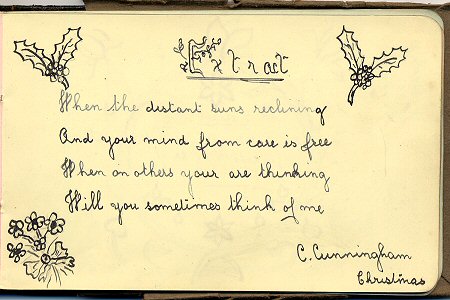 Extract
When the distant suns reclining
And your mind from care is free
When on others your are thinking
Will you sometimes think of me
C. Cunningham
Christmas